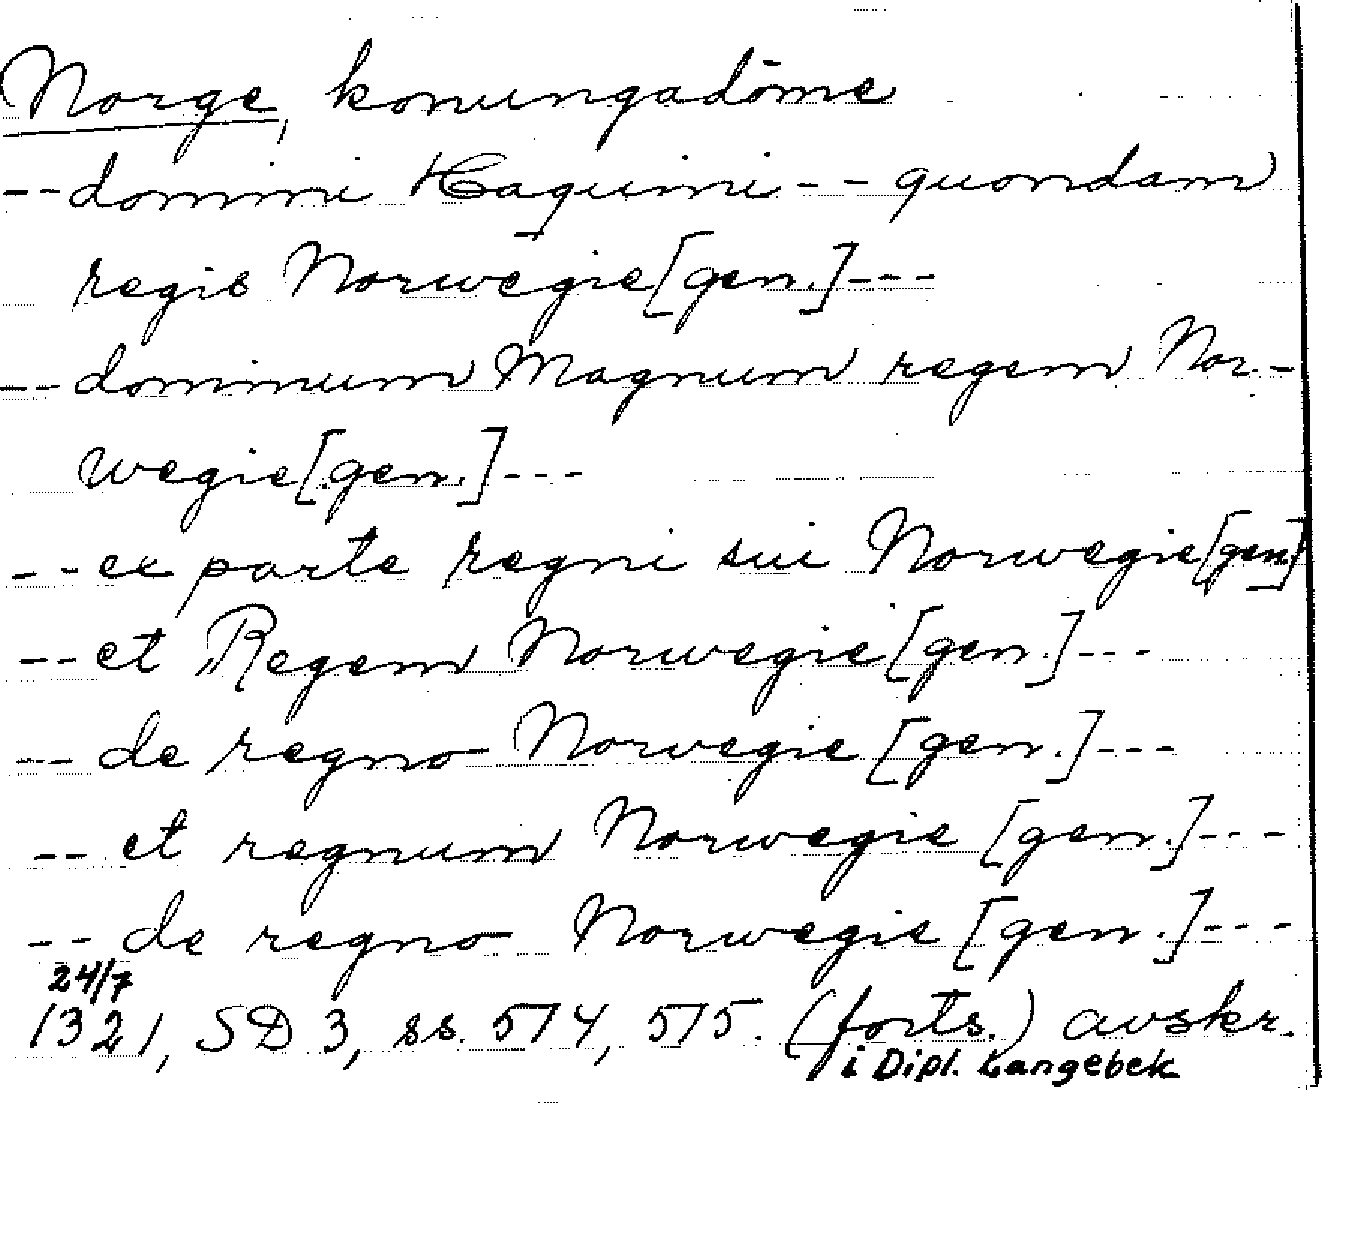 Norge, konungadöme
-- domini Haquini -- quondam
regis Norwegie [gen.] ---
-- dominum Magnum regem Nor-
wegie [gen.] ---
-- ex parte regni sui Norwegie [gen]
-- et Regem Norwegie [gen.] ---
-- de regno Norwegie [gen.] ---
-- et regnum Norwegie [gen.] ---
-- de regno Norwegie [gen.] ---
24/7
1321, SD 3, ss. 574, 575. (forts.) avskr.
i Dipl. Langebek